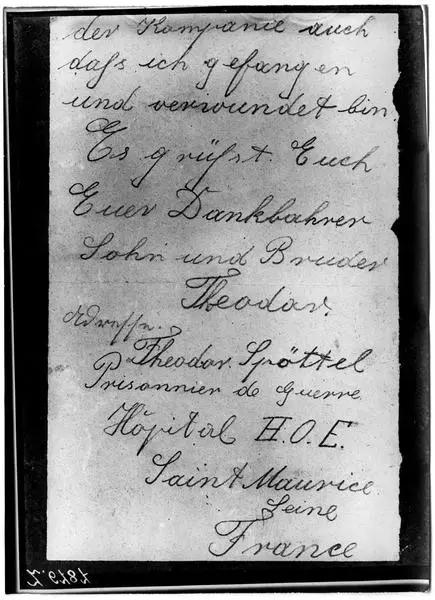 der Kompanie auch
daſs ich gefangen
und verwundet bin.
Es grüſst Euch
Euer Dankbahrer
Sohn und Bruder
Theodor.
Adresse.
Theodor Spöttel
Prisonnier de Guerre
Hôpital H.O.E.
Saint Maurice
Seine
France